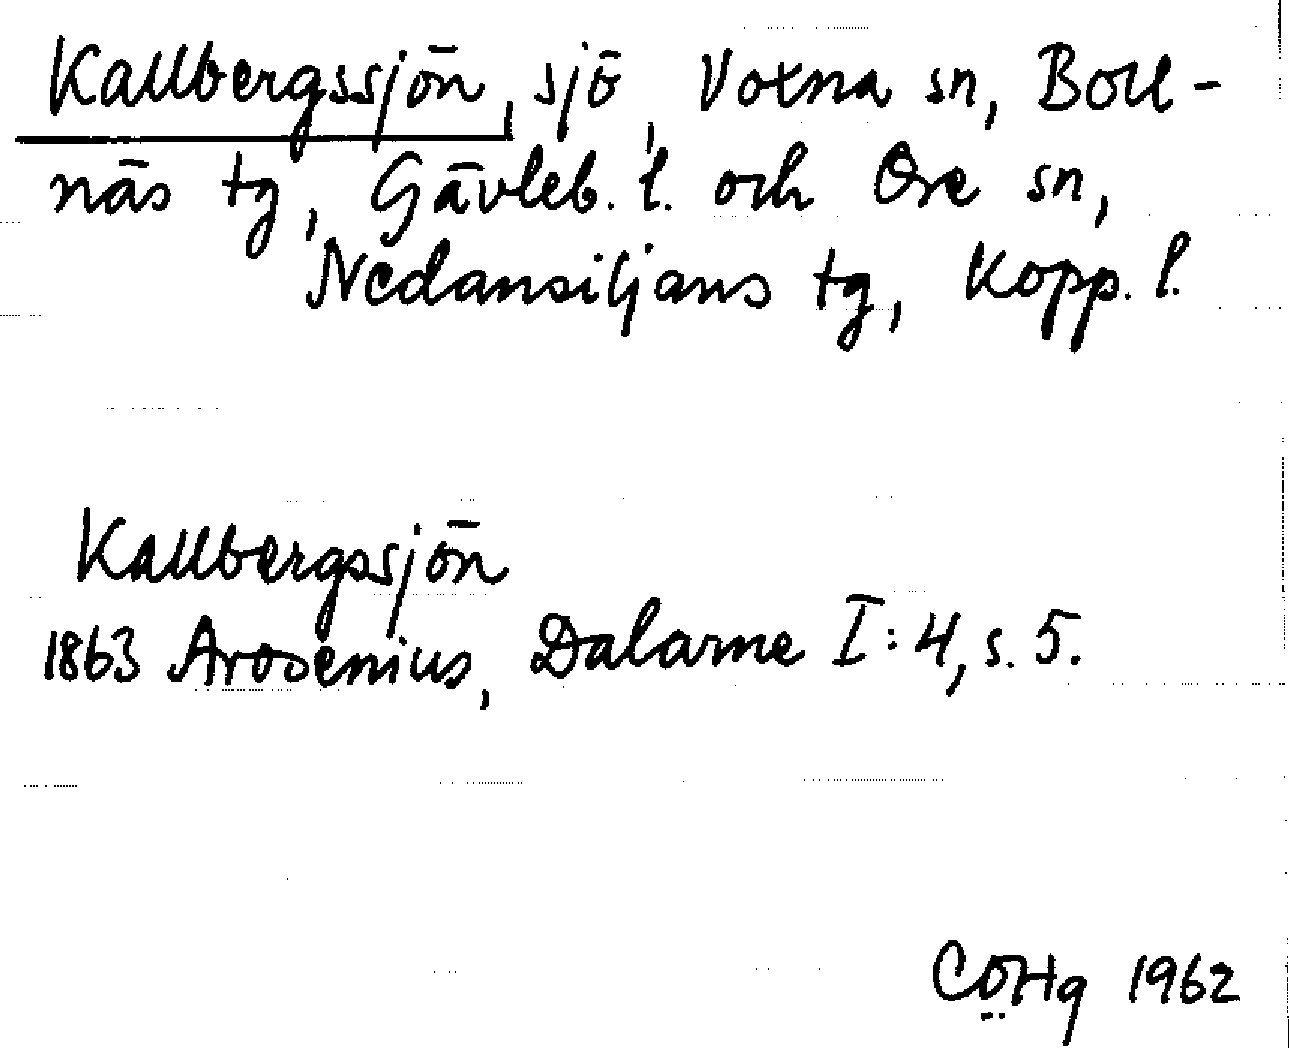 Kallbergssjön, sjö, Voxna sn, Boll-
näs tg, Gävleb. l. och Ore sn,
Nedansiljans tg, Kopp. l.
Kallbergssjön
1863 Arosenius, Dalarne I:4, s. 5.
CÖHg 1962